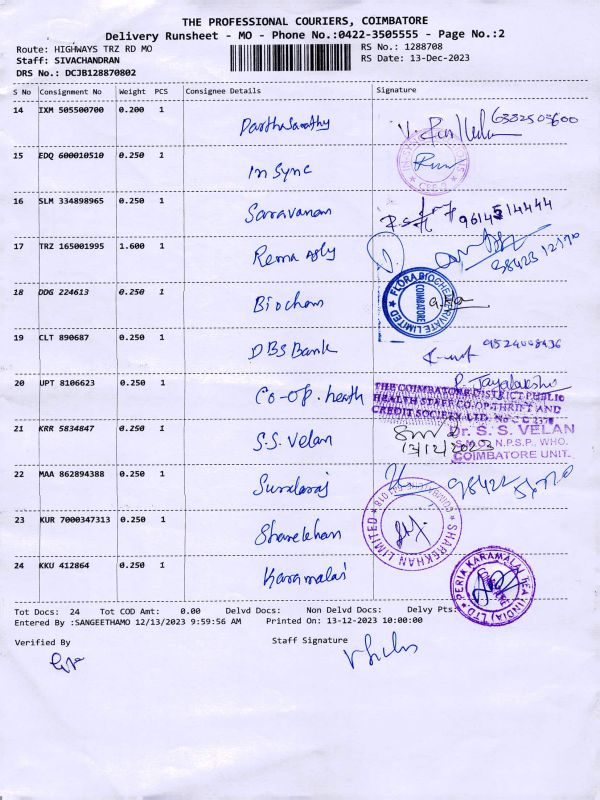 THE PROFESSIONAL COURIERS, COIMBATORE
Delivery Runsheet - MO - Phone No.:0422-3505555 - Page No.:2
Route: HIGHWAYS TRZ RD MO RS No.: 1288708
Staff: SIVACHANDRAN RS Date: 13-Dec-2023
DRS No.: DCJB128870802
S No Consignment No Weight PCS Consignee Details Signature
14 IXM 505500700 0.200 1 Parthasarathy
15 EDQ 600010510 0.250 1 In Sync
16 SLM 334898965 0.250 1 Saravanan 9614514444
17 TRZ 165001995 1.600 1 Rema
18 DDG 224613 0.250 1 Biochem
FLORA BIOCHEM PRIVATE LIMITED COIMBATORE
19 CLT 890687 0.250 1 DBS Bank 9524008936
20 UPT 8106623 0.250 1 Co-op. heath P. Jayalakshmi
THE COIMBATORE DISTRICT PUBLIC
HEALTH STAFF CO-OP.THRIFT AND
CREDIT SOCIETY LTD. No C C 2378
21 KRR 5834847 0.250 1 S.S. Velan
Dr. S. S. VELAN
13/12/2023 S.M.O. N.P.S.P., WHO.
COIMBATORE UNIT.
22 MAA 862894388 0.250 1 Sundaraj
23 KUR 7000347313 0.250 1 Sharekhan
SHAREKHAN LIMITED
24 KKU 412864 0.250 1 Karamalai
PERIA KARAMALAI TEA (INDIA) LTD
Tot Docs: 24 Tot COD Amt: 0.00 Delvd Docs: Non Delvd Docs: Delvy Pts:
Entered By :SANGEETHAMO 12/13/2023 9:59:56 AM Printed On: 13-12-2023 10:00:00
Verified By Staff Signature